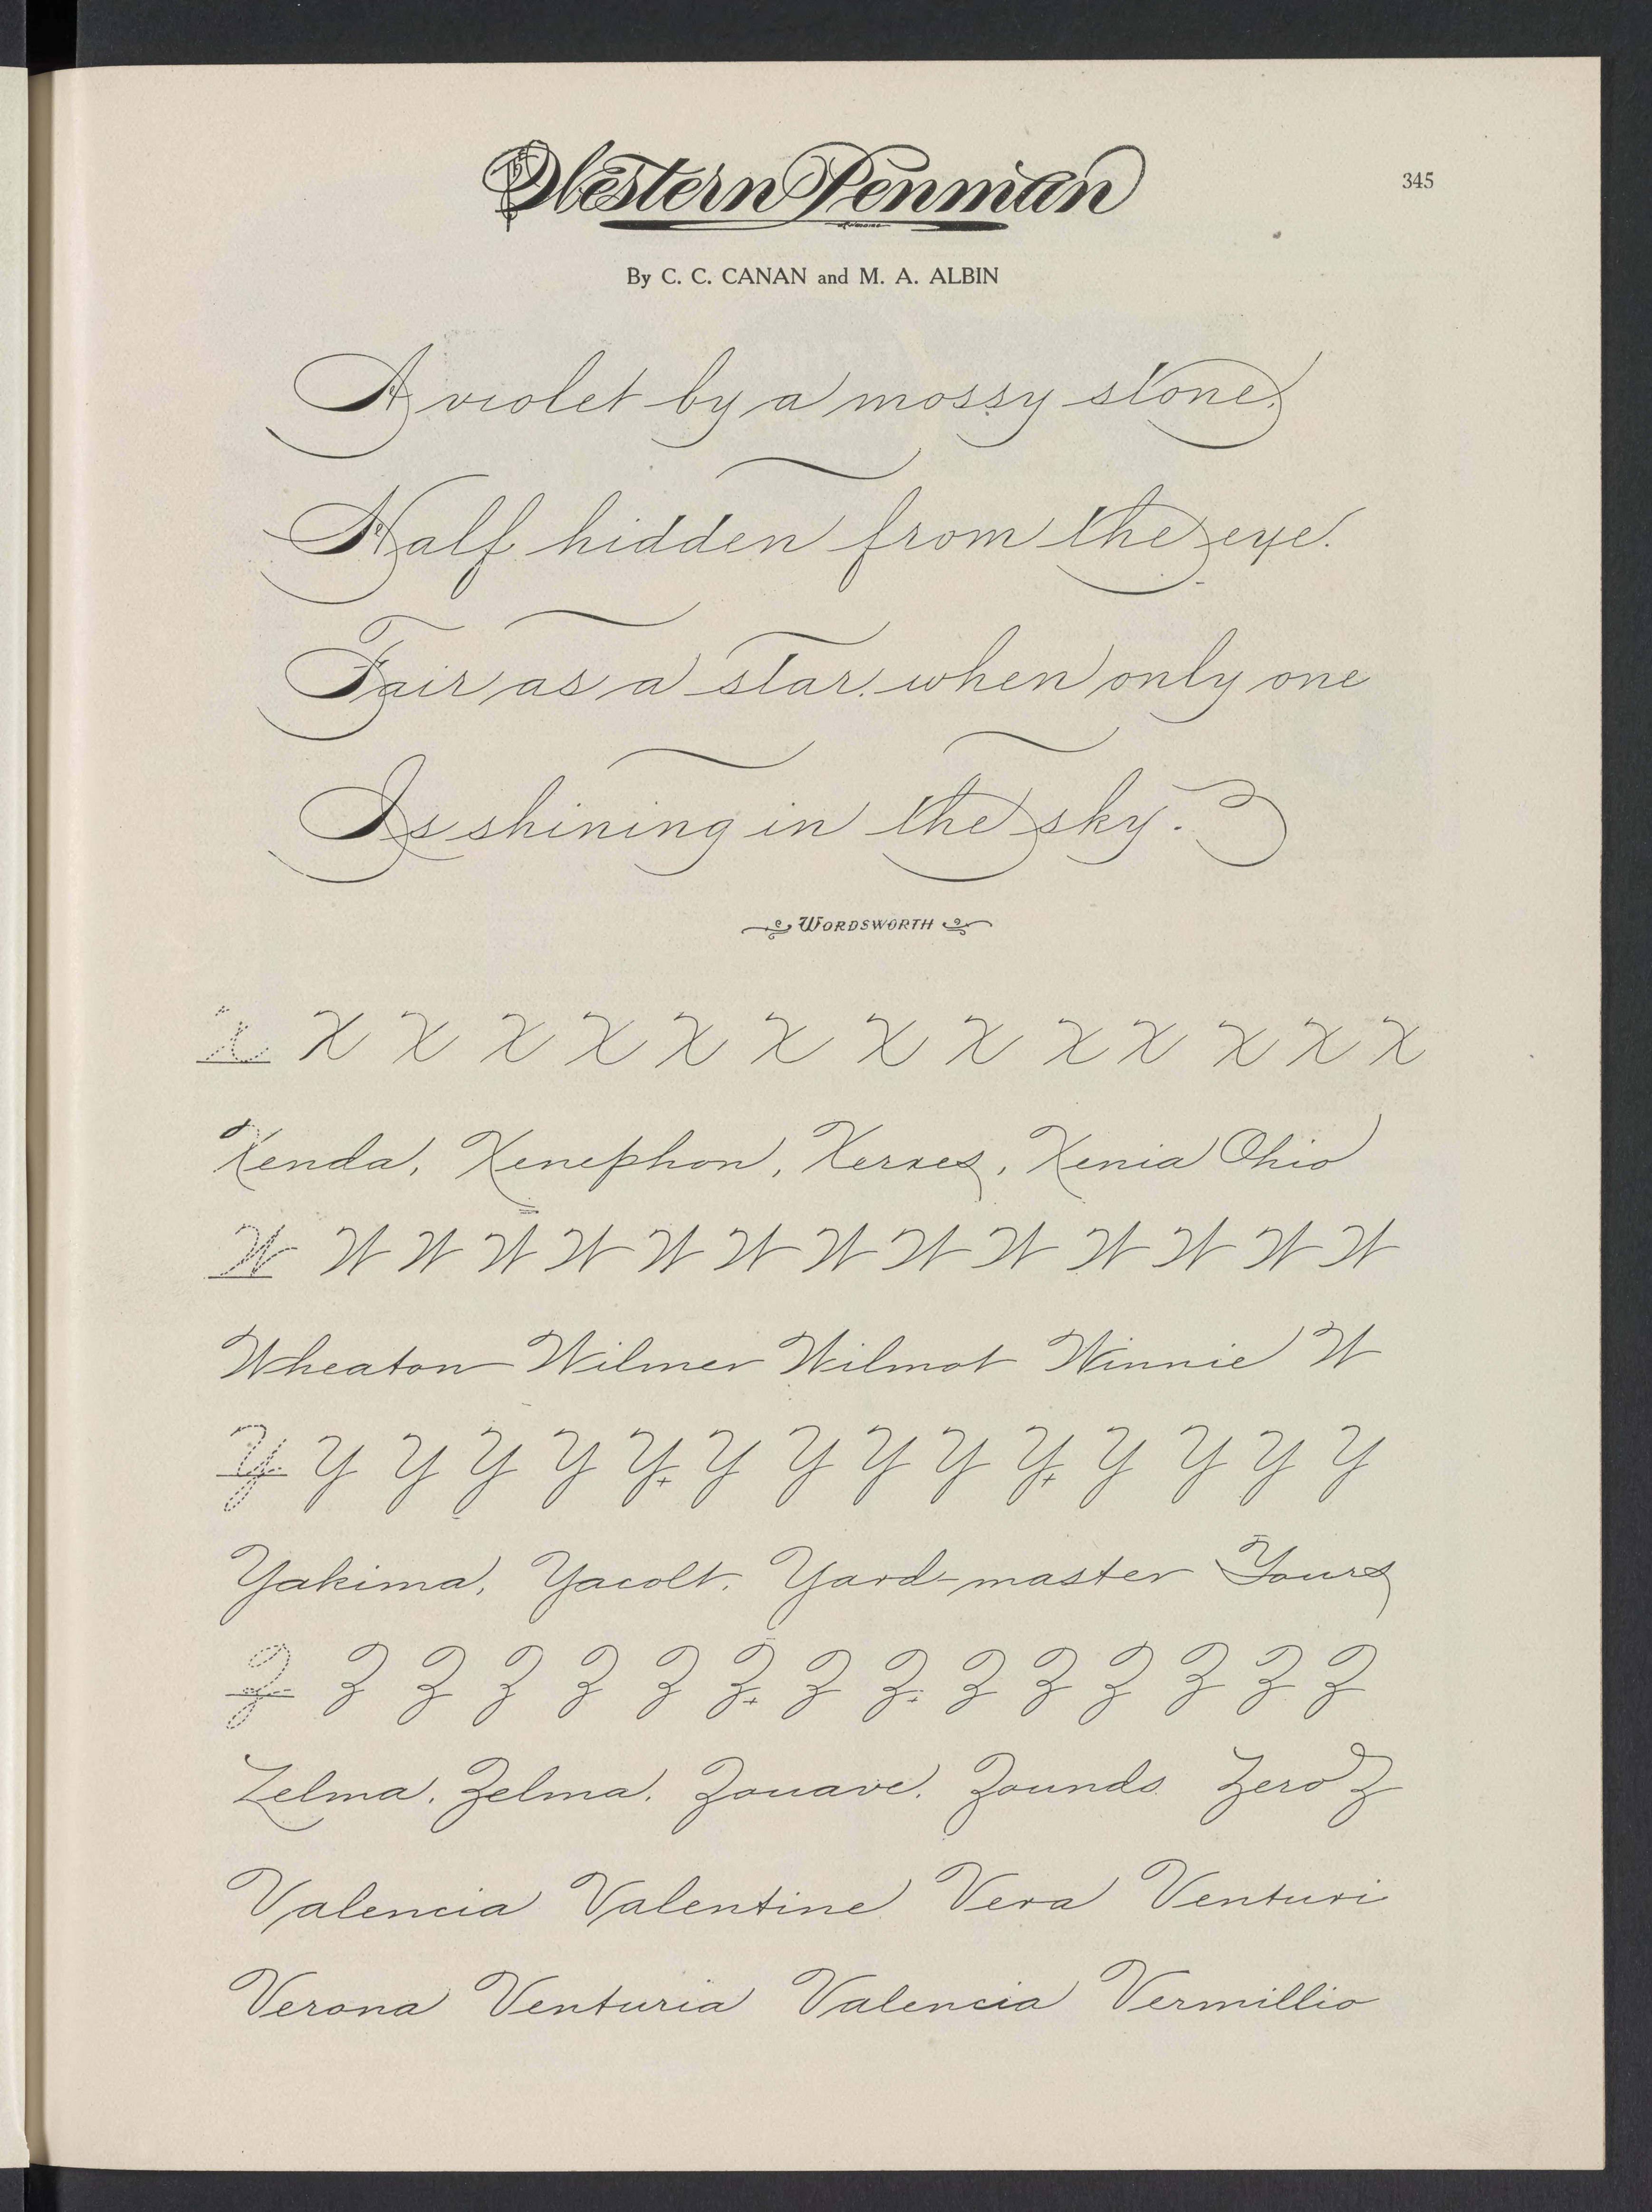 The Western Penman
345
By C. C. CANAN and M. A. ALBIN
A violet by a mossy stone,
Half hidden from the eye.
Fair as a star, when only one
Is shining in the sky.
WORDSWORTH
X X X X X X X X X X X X X X
Xenda, Xenephon, Xerxes, Xenia Ohio
W W W W W W W W W W W W W W
Wheaton Wilmer Wilmot Winnie W
Y Y Y Y Y Y Y Y Y Y Y Y Y Y Y
Yakima, Yacolt, Yard-master Yours
Z Z Z Z Z Z Z Z Z Z Z Z Z Z Z
Zelma, Zelma, Zouave, Zounds Zero Z
Valencia Valentine Vera Venturi
Verona Venturia Valencia Vermillio